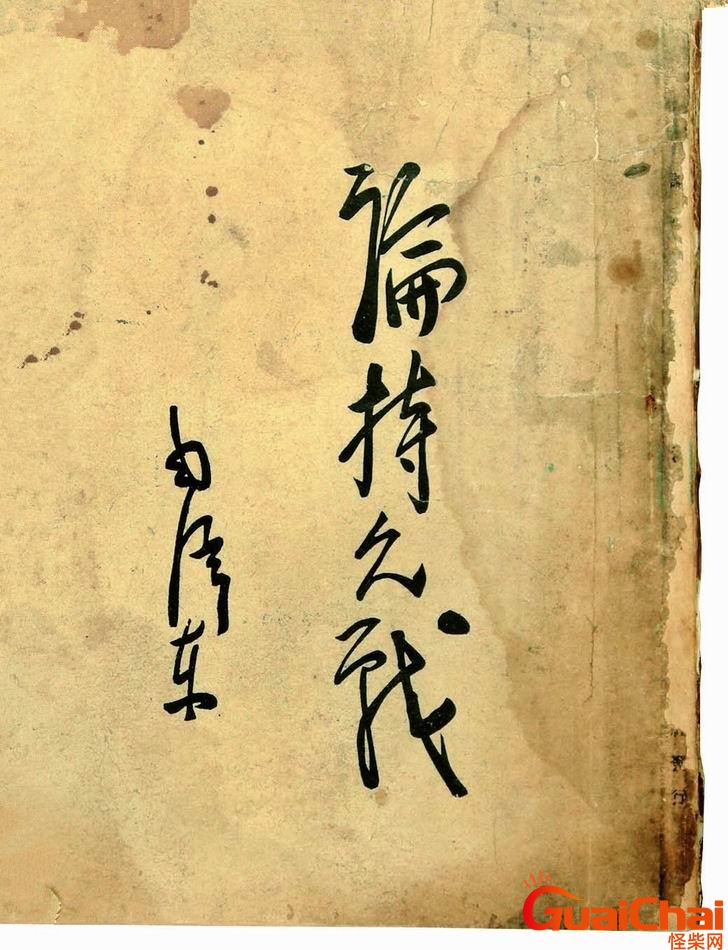 論持久戰
毛澤东
行
GuaiChai
怪柴网